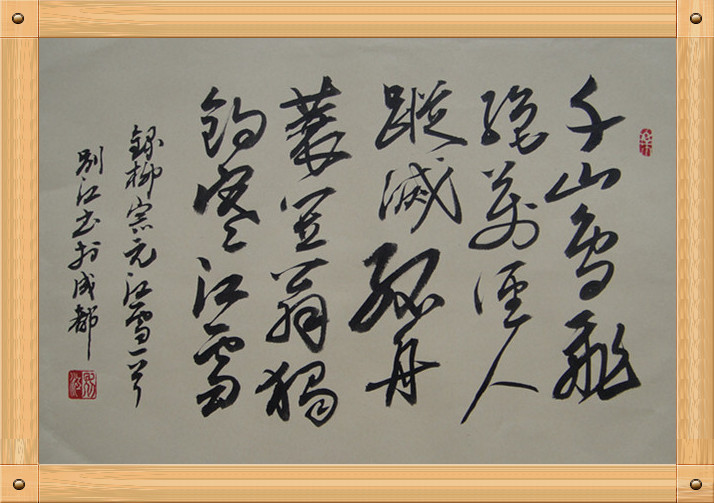 千山鸟飞
绝万径人
蹤滅孤舟
蓑笠翁独
钓寒江雪
録柳宗元江雪一首
别江书於成都